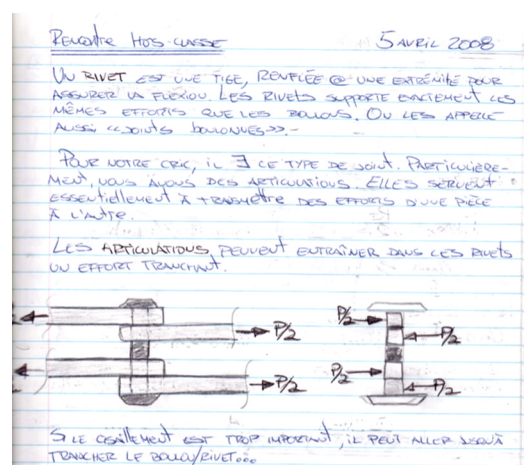 RENCONTRE HORS CLASSE 5 AVRIL 2008
UN RIVET EST UNE TIGE, RENFLÉE @ UNE EXTRÉMITÉ POUR
ASSURER LA FLEXION. LES RIVETS SUPPORTE EXACTEMENT LES
MÊMES EFFORTS QUE LES BOULONS. ON LES APPELLE
AUSSI <<JOINTS BOULONNÉS>>.-
POUR NOTRE CRIC, IL ∃ CE TYPE DE JOINT. PARTICULIÈRE-
MENT, NOUS AVONS DES ARTICULATIONS. ELLES SERVENT
ESSENTIELLEMENT À TRANSMETTRE DES EFFORTS D'UNE PIÈCE
À L'AUTRE.
LES ARTICULATIONS, PEUVENT ENTRAÎNER DANS LES RIVETS
UN EFFORT TRANCHANT.
P/2
P/2
P/2
P/2
P/2
P/2
SI LE CISAILLEMENT EST TROP IMPORTANT, IL PEUT ALLER JUSQU'À
TRANCHER LE BOULON/RIVET...